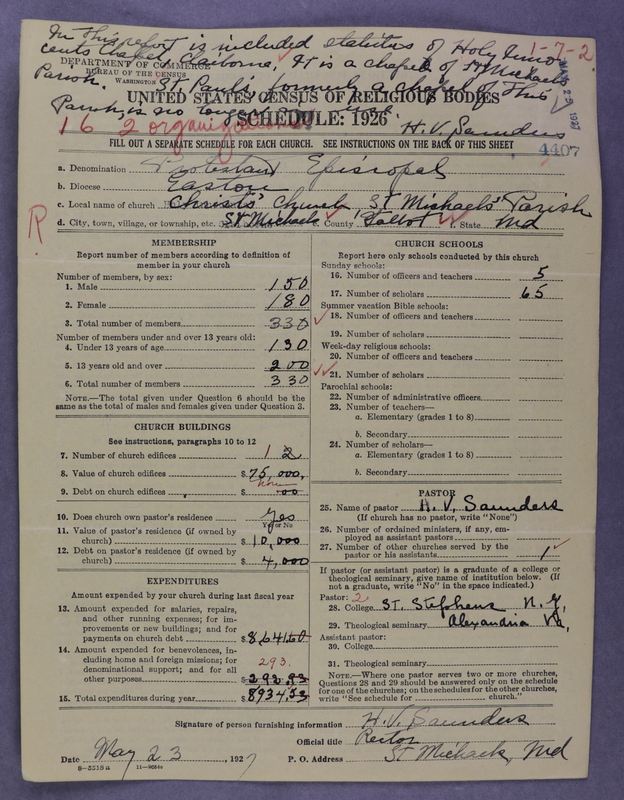 In this report is included statistics of Holy Inno-
cents Chapel, Claiborne, It is a chapel of St Michaels
Parish. St. Paul's, formerly a chapel of this
Parish, is no longer
H. V. Saunders
1-7-2
MAY 25 1927
DEPARTMENT OF COMMERCE
BUREAU OF THE CENSUS
WASHINGTON
UNITED STATES CENSUS OF RELIGIOUS BODIES
SCHEDULE: 1926
16 2 organizations
FILL OUT A SEPARATE SCHEDULE FOR EACH CHURCH. SEE INSTRUCTIONS ON THE BACK OF THIS SHEET
4407
a. Denomination Protestant Episcopal
b. Diocese Easton
c. Local name of church Christs' Church St Michaels' Parish
d. City, town, village, or township, etc. St Michaels e. County Talbot f. State Md
R
MEMBERSHIP
Report number of members according to definition of
member in your church
Number of members, by sex:
1. Male 150
2. Female 180
3. Total number of members 330
Number of members under and over 13 years old:
4. Under 13 years of age 130
5. 13 years old and over 200
6. Total number of members 330
NOTE.—The total given under Question 6 should be the
same as the total of males and females given under Question 3.
CHURCH BUILDINGS
See instructions, paragraphs 10 to 12
7. Number of church edifices 1 2
8. Value of church edifices $75,000,
none
9. Debt on church edifices $ 00
10. Does church own pastor's residence Yes
Yes or No
11. Value of pastor's residence (if owned by
church) $10,000
12. Debt on pastor's residence (if owned by
church) $4,000
EXPENDITURES
Amount expended by your church during last fiscal year
13. Amount expended for salaries, repairs,
and other running expenses; for im-
provements or new buildings; and for
payments on church debt $8,641.60
14. Amount expended for benevolences, in-
cluding home and foreign missions; for
denominational support; and for all
293.
other purposes $292.93
15. Total expenditures during year $8934.53
CHURCH SCHOOLS
Report here only schools conducted by this church
Sunday schools:
16. Number of officers and teachers 5
17. Number of scholars 65
Summer vacation Bible schools:
18. Number of officers and teachers
19. Number of scholars
Week-day religious schools:
20. Number of officers and teachers
21. Number of scholars
Parochial schools:
22. Number of administrative officers
23. Number of teachers—
a. Elementary (grades 1 to 8)
b. Secondary
24. Number of scholars—
a. Elementary (grades 1 to 8)
b. Secondary
PASTOR
25. Name of pastor H. V. Saunders
(If church has no pastor, write "None")
26. Number of ordained ministers, if any, em-
ployed as assistant pastors
27. Number of other churches served by the
pastor or his assistants 1
If pastor (or assistant pastor) is a graduate of a college or
theological seminary, give name of institution below. (If
not a graduate, write "No" in the space indicated.)
Pastor: 2
28. College St. Stephens N.Y,
29. Theological seminary Alexandria Va,
Assistant pastor:
30. College
31. Theological seminary
NOTE.—Where one pastor serves two or more churches,
Questions 28 and 29 should be answered only on the schedule
for one of the churches; on the schedules for the other churches,
write "See schedule for church."
Signature of person furnishing information H. V. Saunders
Official title Rector
Date May 23, 1927 P. O. Address St Michaels, Md
8—5518a 11—9664a